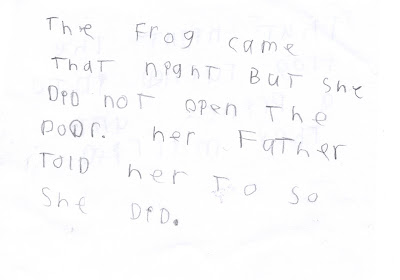 The Frog came
That night But she
DiD not open The
DoOr. her Father
TOlD her To so
She DiD.